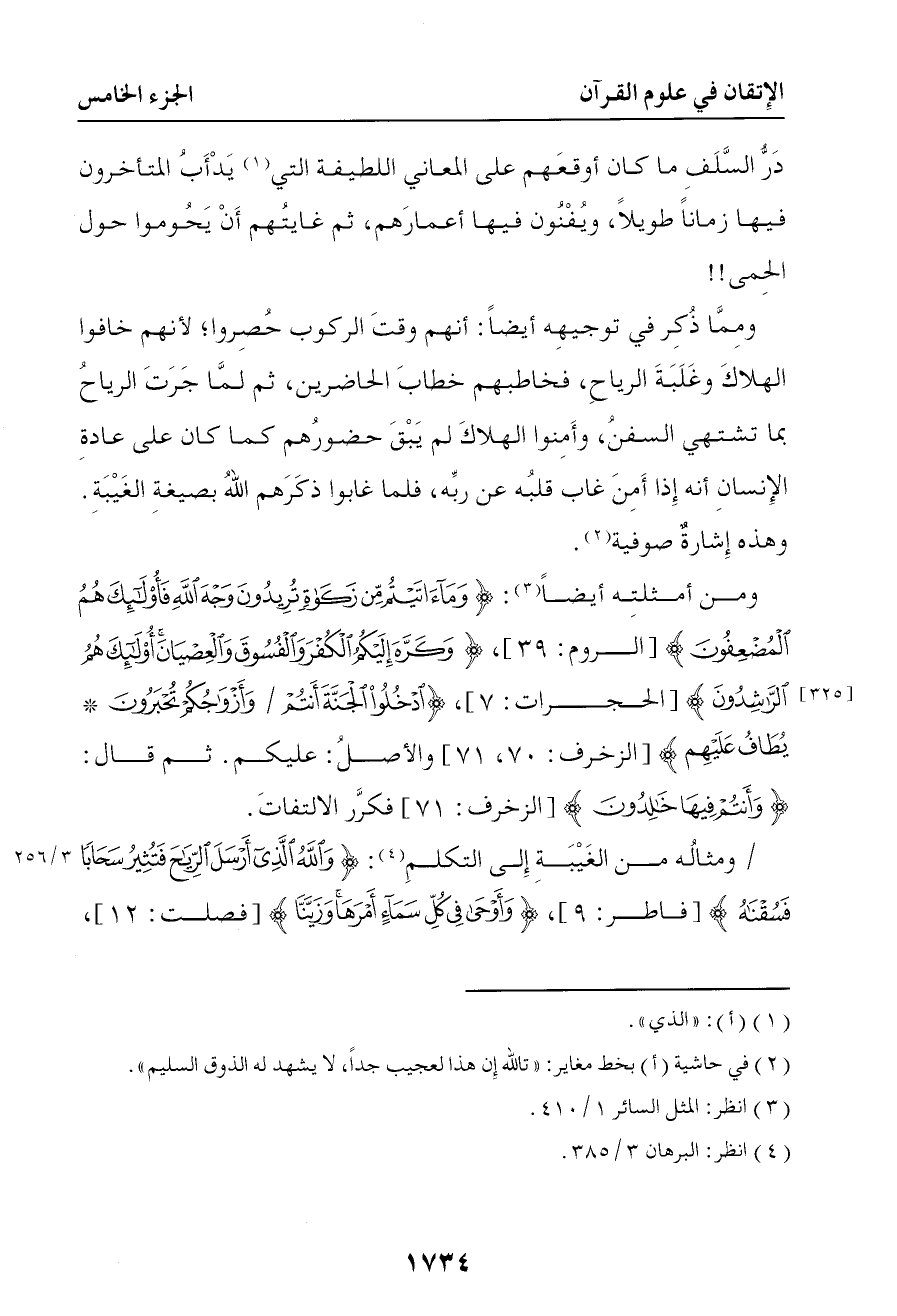 الإتقان في علوم القرآن الجزء الخامس
دَرُّ السَّلَفِ ما كان أوقعَهم على المعاني اللطيفة التي(١) يَدْأَبُ المتأخرون
فيها زماناً طويلاً، ويُفْنُون فيها أعمارَهم، ثم غايتُهم أنْ يَحُوموا حول
الحِمى!!
وممَّا ذُكِر في توجيهِه أيضاً: أنهم وقتَ الركوب حُصِروا؛ لأنهم خافوا
الهلاكَ وغَلَبَةَ الرياحِ، فخاطبهم خطابَ الحاضرين، ثم لمَّا جَرَتَ الرياحُ
بما تشتهي السفنُ، وأَمِنوا الهلاكَ لم يَبْقَ حضورُهم كما كان على عادةِ
الإِنسانِ أنه إذا أَمِنَ غاب قلبُه عن ربِّه، فلما غابوا ذكَرَهم اللهُ بصيغةِ الغَيْبَةِ.
وهذه إشارةٌ صوفية(٢).
ومن أمثلته أيضاً(٣): ﴿ وَمَآ ءَاتَيْتُم مِّن زَكَوٰةٍ تُرِيدُونَ وَجْهَ ٱللَّهِ فَأُو۟لَـٰٓئِكَ هُمُ
ٱلْمُضْعِفُونَ ﴾ [الروم: ٣٩]، ﴿ وَكَرَّهَ إِلَيْكُمُ ٱلْكُفْرَ وَٱلْفُسُوقَ وَٱلْعِصْيَانَ ۚ أُو۟لَـٰٓئِكَ هُمُ
ٱلرَّٰشِدُونَ ﴾ [الحجرات: ٧]، ﴿ٱدْخُلُوا۟ ٱلْجَنَّةَ أَنتُمْ / وَأَزْوَٰجُكُمْ تُحْبَرُونَ * [٣٢٥]
يُطَافُ عَلَيْهِم ﴾ [الزخرف: ٧٠، ٧١] والأصلُ: عليكم. ثم قال:
﴿ وَأَنتُمْ فِيهَا خَـٰلِدُونَ ﴾ [الزخرف: ٧١] فكرَّر الالتفاتَ.
/ ومثالُه من الغَيْبَة إلى التكلمِ(٤): ﴿ وَٱللَّهُ ٱلَّذِىٓ أَرْسَلَ ٱلرِّيَـٰحَ فَتُثِيرُ سَحَابًا ٢٥٦/٣
فَسُقْنَـٰهُ ﴾ [فاطر: ٩]، ﴿ وَأَوْحَىٰ فِى كُلِّ سَمَآءٍ أَمْرَهَا ۚ وَزَيَّنَّا ﴾ [فصلت: ١٢]،
(١) (أ): «الذي».
(٢) في حاشية (أ) بخط مغاير: «تالله إن هذا لعجيب جداً، لا يشهد له الذوق السليم».
(٣) انظر: المثل السائر ١/ ٤١٠.
(٤) انظر: البرهان ٣/ ٣٨٥.
١٧٣٤